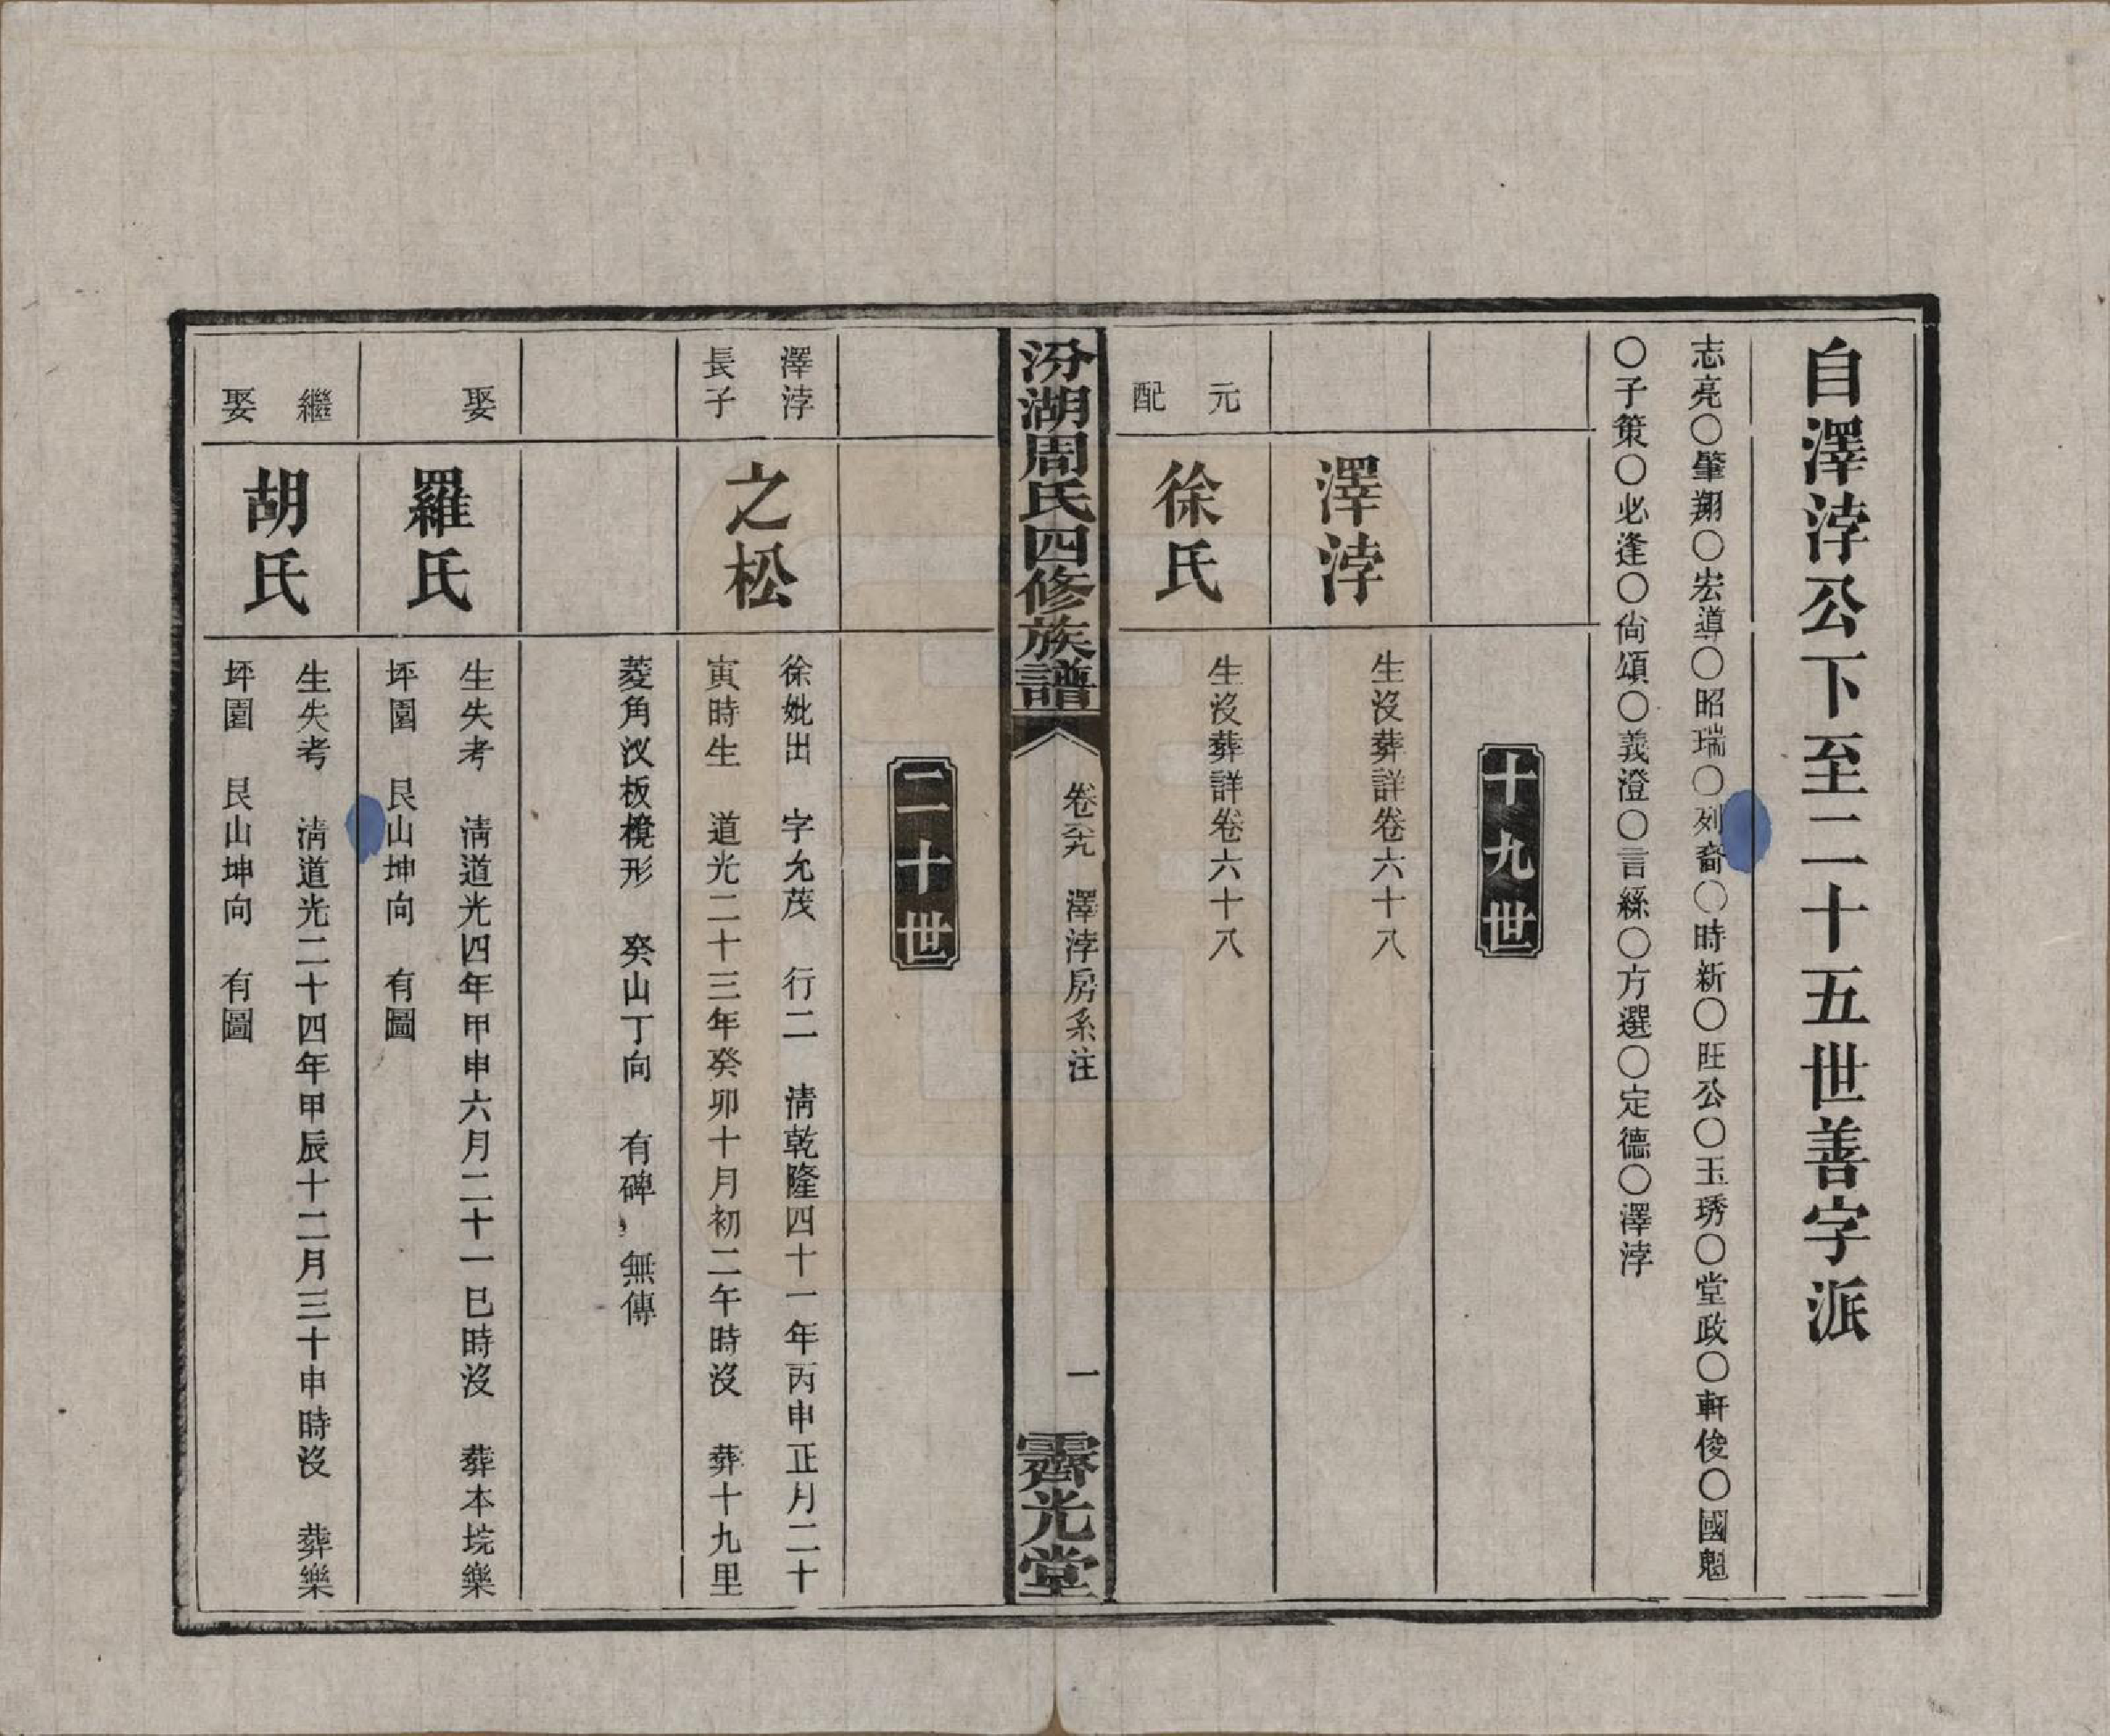 自澤浡公下至二十五世善字派
志亮〇肇翔〇宏導〇昭瑞〇列裔〇時新〇旺公〇玉琇〇堂政〇軒俊〇國魁
〇子策〇必逢〇尙頌〇義澄〇言絲〇方選〇定德〇澤浡
十九世
澤浡
生沒葬詳卷六十八
元配
徐氏
生沒葬詳卷六十八
汾湖周氏四修族譜
卷六十九 澤浡房系注
一
霽光堂
二十世
澤浡
長子
之松
徐妣出 字允茂 行二 淸乾隆四十一年丙申正月二十
寅時生 道光二十三年癸卯十月初二午時沒 葬十九里
菱角汊板櫈形 癸山丁向 有碑 無傳
娶
羅氏
生失考 淸道光四年甲申六月二十一巳時沒 葬本垸樂
坪園 艮山坤向 有圖
繼娶
胡氏
生失考 淸道光二十四年甲辰十二月三十申時沒 葬樂
坪園 艮山坤向 有圖